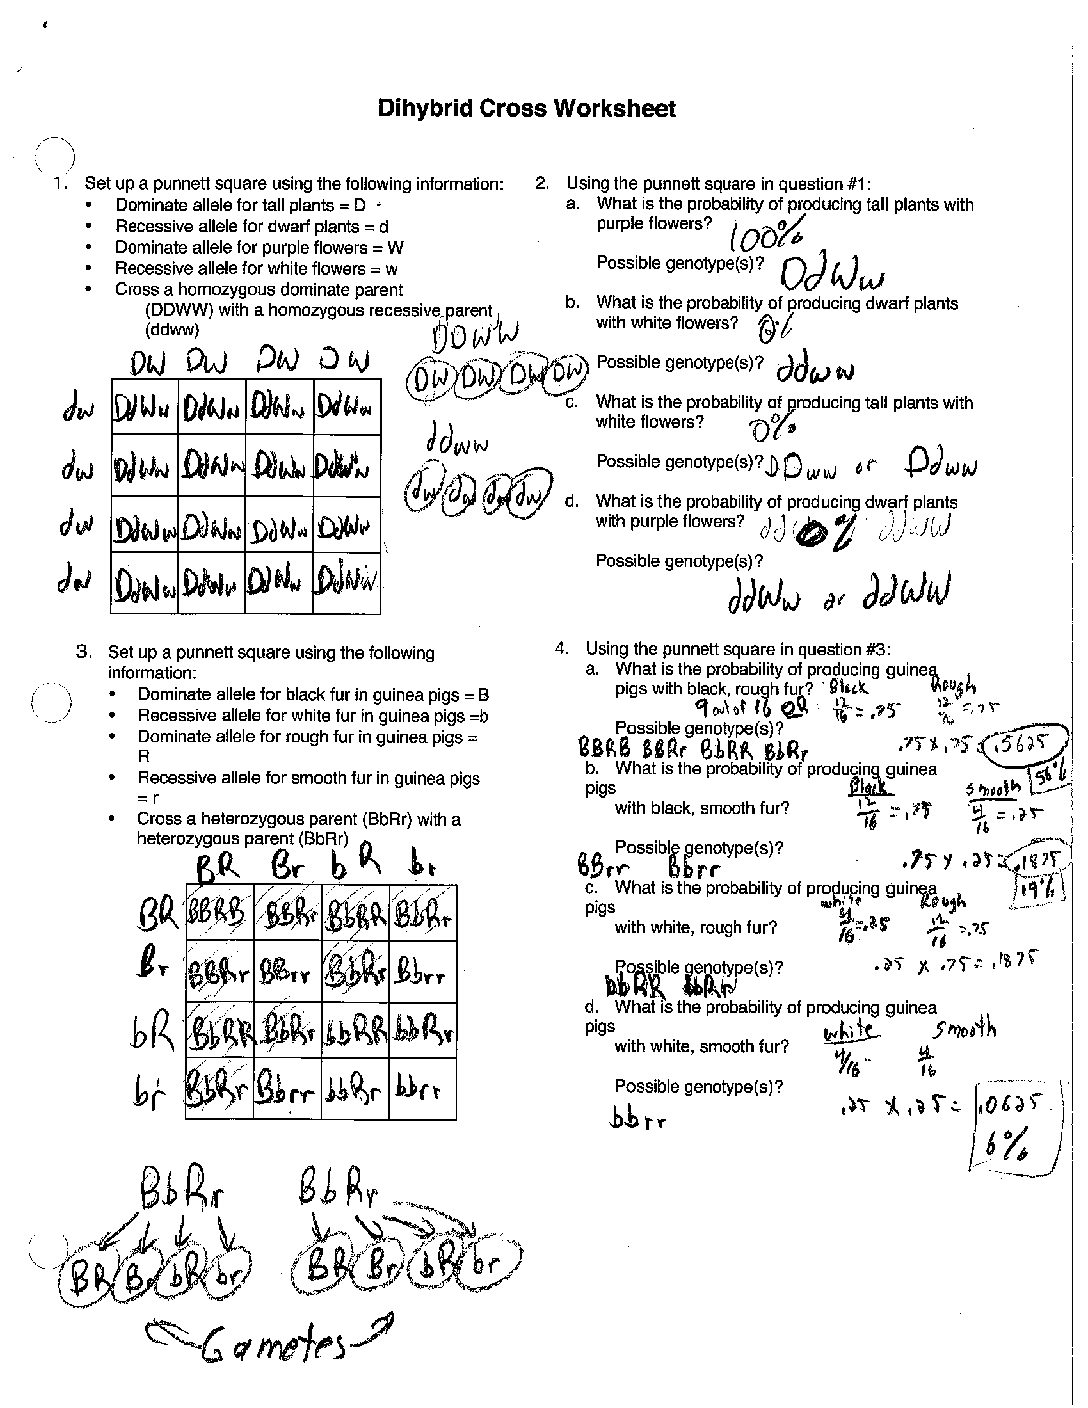 Dihybrid Cross Worksheet
1. Set up a punnett square using the following information:
• Dominate allele for tall plants = D
• Recessive allele for dwarf plants = d
• Dominate allele for purple flowers = W
• Recessive allele for white flowers = w
• Cross a homozygous dominate parent
(DDWW) with a homozygous recessive parent
(ddww)
DDWW
DW DW DW DW
DW DW DW DW
dw DdWw DdWw DdWw DdWw
ddww
dw DdWw DdWw DdWw DdWw
dw dw dw dw
dw DdWw DdWw DdWw DdWw
dw DdWw DdWw DdWw DdWw
2. Using the punnett square in question #1:
a. What is the probability of producing tall plants with
purple flowers? 100%
Possible genotype(s)? DdWw
b. What is the probability of producing dwarf plants
with white flowers? 0%
Possible genotype(s)? ddww
c. What is the probability of producing tall plants with
white flowers? 0%
Possible genotype(s)? DDww or Ddww
d. What is the probability of producing dwarf plants
with purple flowers? dd 0% ddWW
Possible genotype(s)?
ddWw or ddWW
3. Set up a punnett square using the following
information:
• Dominate allele for black fur in guinea pigs = B
• Recessive allele for white fur in guinea pigs =b
• Dominate allele for rough fur in guinea pigs =
R
• Recessive allele for smooth fur in guinea pigs
= r
• Cross a heterozygous parent (BbRr) with a
heterozygous parent (BbRr)
BR Br bR br
BR BBRR BBRr BbRR BbRr
Br BBRr BBrr BbRr Bbrr
bR BbRR BbRr bbRR bbRr
br BbRr Bbrr bbRr bbrr
BbRr BbRr
BR Br bR br BR Br bR br
Gametes
4. Using the punnett square in question #3:
a. What is the probability of producing guinea
pigs with black, rough fur? Black Rough
9 out of 16 OR 12/16 = .75 12/16 = .75
Possible genotype(s)?
BBRR BBRr BbRR BbRr .75 x .75 = .5625
56%
b. What is the probability of producing guinea
pigs Black smooth
with black, smooth fur? 12/16 = .75 4/16 = .25
Possible genotype(s)?
BBrr Bbrr .75 x .25 = .1875
19%
c. What is the probability of producing guinea
pigs white Rough
with white, rough fur? 4/16 = .25 12/16 = .75
Possible genotype(s)? .25 x .75 = .1875
bbRR bbRr
d. What is the probability of producing guinea
pigs white smooth
with white, smooth fur? 4/16 = 4/16
Possible genotype(s)?
bbrr .25 x .25 = .0625
6%